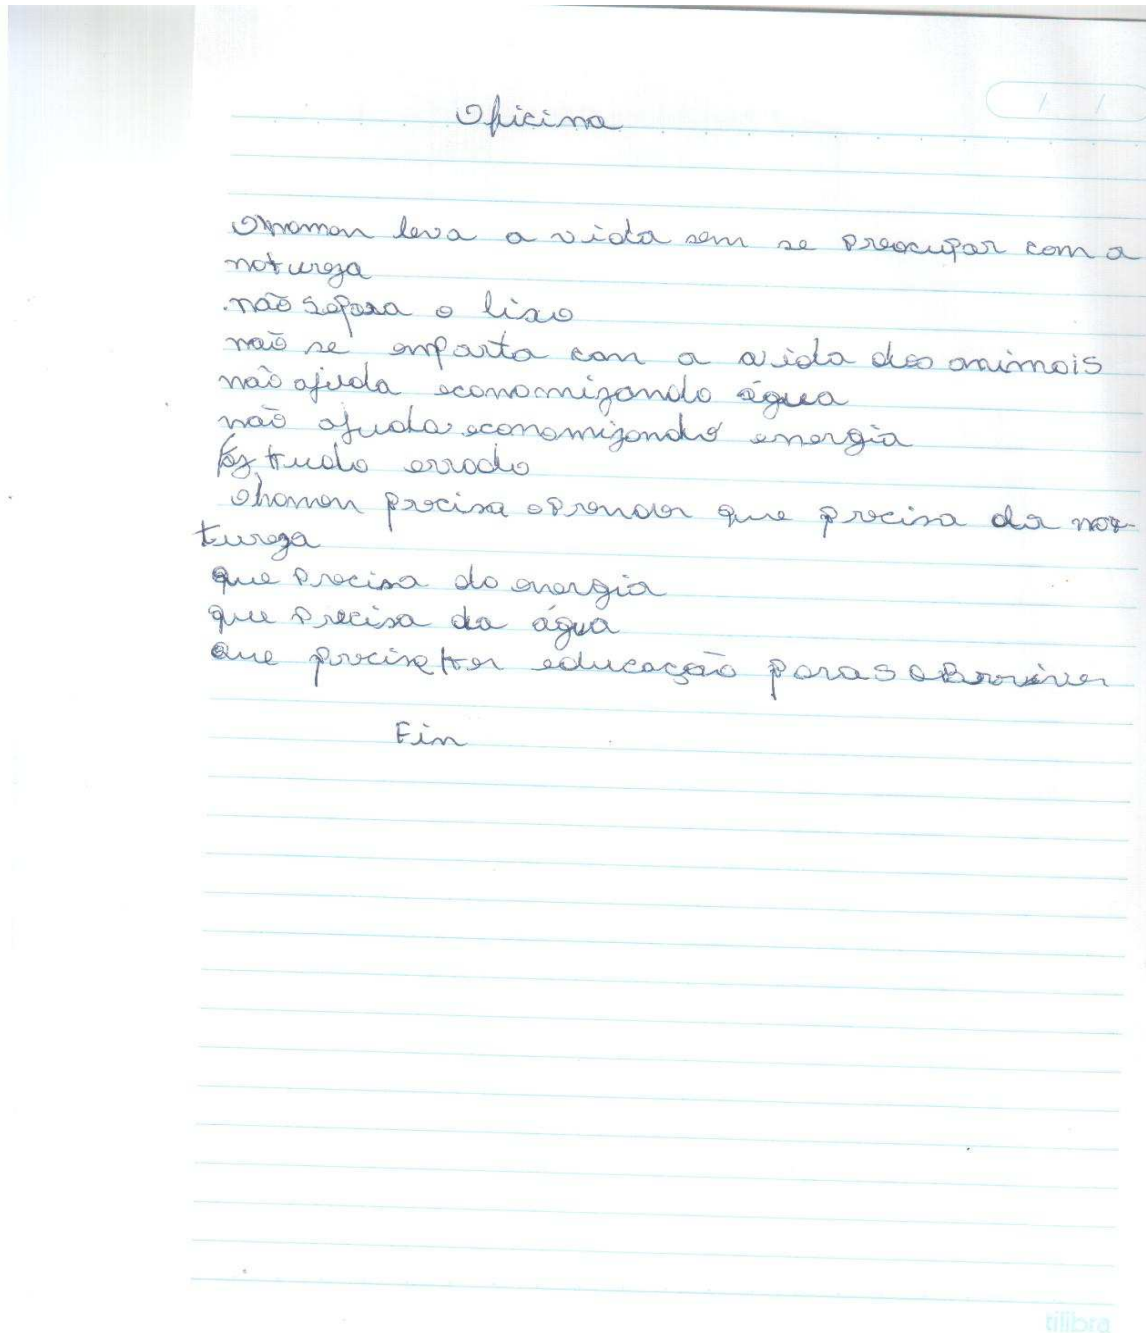 Oficina
Ohomen leva a vida sem se preocupar com a
natureza
não separa o lixo
não se emporta com a vida dos animais
não ajuda economizando água
não ajuda economizando energia
faz tudo errado
Ohomen precisa aprender que precisa da na-
tureza
que precisa de energia
que precisa da água
que precisa ter educação para sobreviver
Fim
tilibra